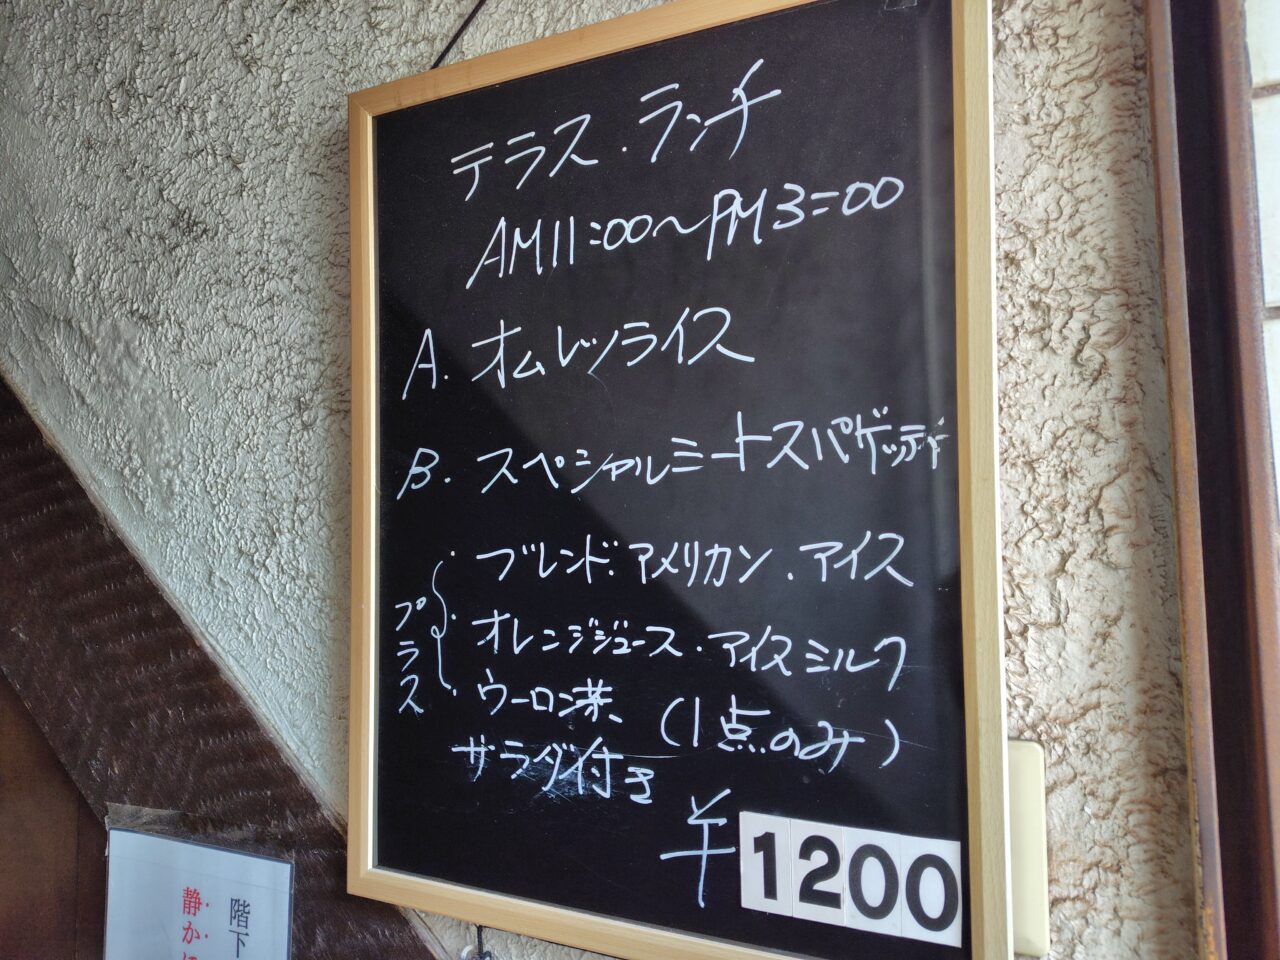 テラス・ランチ
AM11:00～PM3:00
A. オムレツライス
B. スペシャルミートスパゲッティ
プラス
ブレンド.アメリカン.アイス
オレンジジュース.アイスミルク
ウーロン茶 (1点のみ)
サラダ付き
¥1200
階下
静か